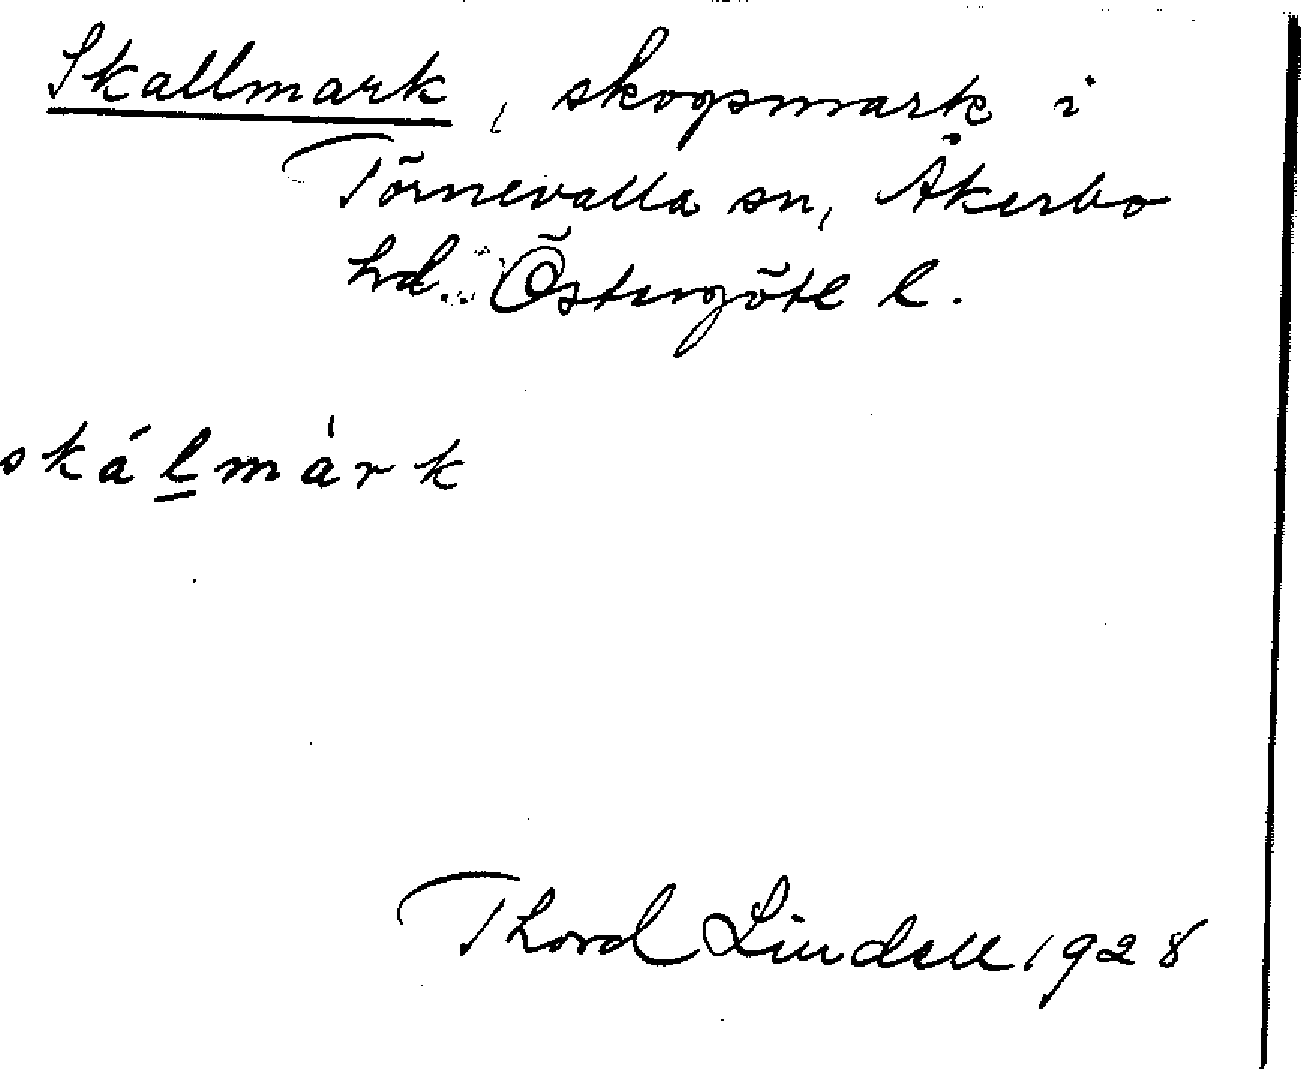 Skallmark, skogsmark i
Törnevalla sn, Åkerbo
hd. Östergötl l.
skálmàrk
Thord Lindell 1928